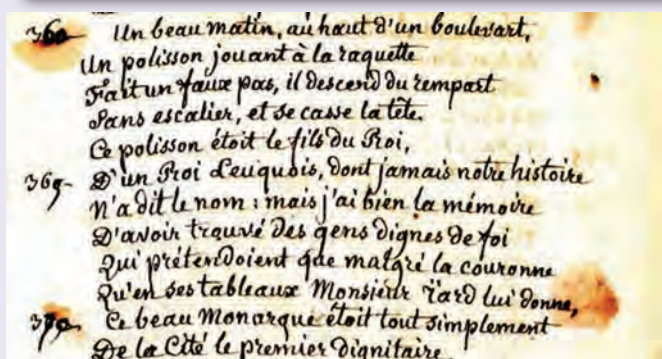 360 Un beau matin, au haut d'un boulevart,
Un polisson jouant à la raquette
Fait un faux pas, il descend du rempart
Sans escalier, et se casse la tête.
Ce polisson étoit le fils du Roi,
365 D'un Roi Leuquois, dont jamais notre histoire
N'a dit le nom : mais j'ai bien la mémoire
D'avoir trouvé des gens dignes de foi
Qui prétendoient que malgré la couronne
Qu'en ses tableaux Monsieur Yard lui donne,
370 Ce beau Monarque étoit tout simplement
De la Cité le premier dignitaire.